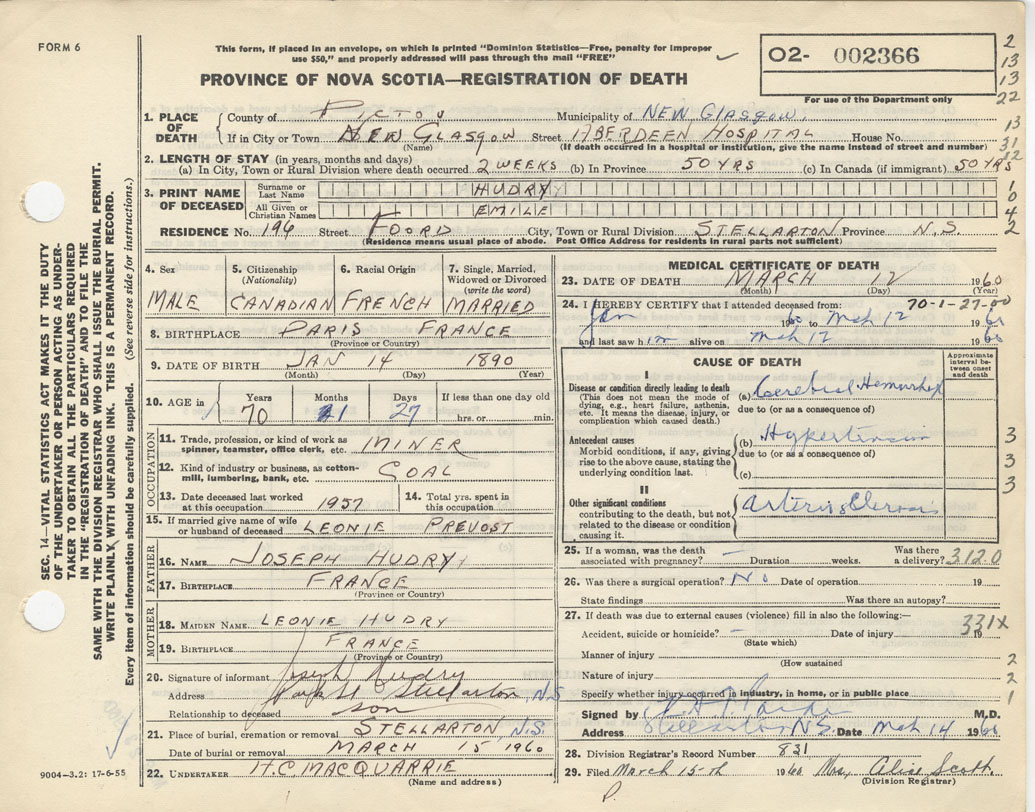 FORM 6
This form, if placed in an envelope, on which is printed "Dominion Statistics—Free, penalty for improper
use $50," and properly addressed will pass through the mail "FREE"
PROVINCE OF NOVA SCOTIA—REGISTRATION OF DEATH
O2- 002366
For use of the Department only
2
13
13
22
13
31
12
1
0
4
2
1. PLACE OF DEATH
County of PICTOU Municipality of NEW GLASGOW.
If in City or Town NEW GLASGOW Street ABERDEEN HOSPITAL House No.
(Name) (If death occurred in a hospital or institution, give the name instead of street and number)
2. LENGTH OF STAY (in years, months and days)
(a) In City, Town or Rural Division where death occurred 2 WEEKS (b) In Province 50 YRS (c) In Canada (if immigrant) 50 YRS
3. PRINT NAME OF DECEASED
Surname or Last Name HUDRY
All Given or Christian Names EMILE
RESIDENCE No. 196 Street FOORD City, Town or Rural Division STELLARTON Province N.S.
(Residence means usual place of abode. Post Office Address for residents in rural parts not sufficient)
4. Sex
MALE
5. Citizenship (Nationality)
CANADIAN
6. Racial Origin
FRENCH
7. Single, Married, Widowed or Divorced (write the word)
MARRIED
8. BIRTHPLACE PARIS FRANCE
(Province or Country)
9. DATE OF BIRTH JAN 14 1890
(Month) (Day) (Year)
10. AGE in
Years Months Days If less than one day old
70 1 27 hrs. or min.
OCCUPATION
11. Trade, profession, or kind of work as spinner, teamster, office clerk, etc. MINER
12. Kind of industry or business, as cotton-mill, lumbering, bank, etc. COAL
13. Date deceased last worked at this occupation 1957
14. Total yrs. spent in this occupation
15. If married give name of wife or husband of deceased LEONIE PREVOST
FATHER
16. NAME JOSEPH HUDRY
17. BIRTHPLACE FRANCE
(Province or Country)
MOTHER
18. MAIDEN NAME LEONIE HUDRY
19. BIRTHPLACE FRANCE
(Province or Country)
20. Signature of informant Joseph Hudry
Address Stellarton, N.S
Relationship to deceased son
21. Place of burial, cremation or removal STELLARTON N.S.
Date of burial or removal MARCH 15 1960
22. UNDERTAKER H.C MACQUARRIE
(Name and address)
MEDICAL CERTIFICATE OF DEATH
23. DATE OF DEATH MARCH 12 1960
(Month) (Day) (Year)
24. I HEREBY CERTIFY that I attended deceased from: 70-1-27-00
Jan 1960 to Mch 12 1960
and last saw him alive on Mch 12 1960
CAUSE OF DEATH
Approximate interval between onset and death
I
Disease or condition directly leading to death
(This does not mean the mode of dying, e.g., heart failure, asthenia, etc. It means the disease, injury, or complication which caused death.)
(a) Cerebral Hemorrhage
due to (or as a consequence of)
Antecedent causes
Morbid conditions, if any, giving rise to the above cause, stating the underlying condition last.
(b) Hypertension
due to (or as a consequence of)
(c)
3
3
3
II
Other significant conditions
contributing to the death, but not related to the disease or condition causing it.
Arteriosclerosis
25. If a woman, was the death associated with pregnancy? — Duration weeks. Was there a delivery? 3120
26. Was there a surgical operation? No Date of operation 19
State findings Was there an autopsy?
27. If death was due to external causes (violence) fill in also the following:—
331X
Accident, suicide or homicide? — Date of injury 19
(State which)
Manner of injury
(How sustained
Nature of injury
2
2
1
Specify whether injury occurred in industry, in home, or in public place
Signed by M.D.
Address Stellarton N.S. Date Mch 14 1960
28. Division Registrar's Record Number 831
29. Filed March 15th 1960 Mrs. Alice Scott.
(Division Registrar)
P.
SEC. 14—VITAL STATISTICS ACT MAKES IT THE DUTY
OF THE UNDERTAKER OR PERSON ACTING AS UNDER-
TAKER TO OBTAIN ALL THE PARTICULARS REQUIRED
IN THE "REGISTRATION OF DEATH" AND TO FILE THE
SAME WITH THE DIVISION REGISTRAR WHO SHALL ISSUE THE BURIAL PERMIT.
WRITE PLAINLY, WITH UNFADING INK. THIS IS A PERMANENT RECORD.
Every item of information should be carefully supplied. (See reverse side for instructions.)
9004—3.2: 17-6-55